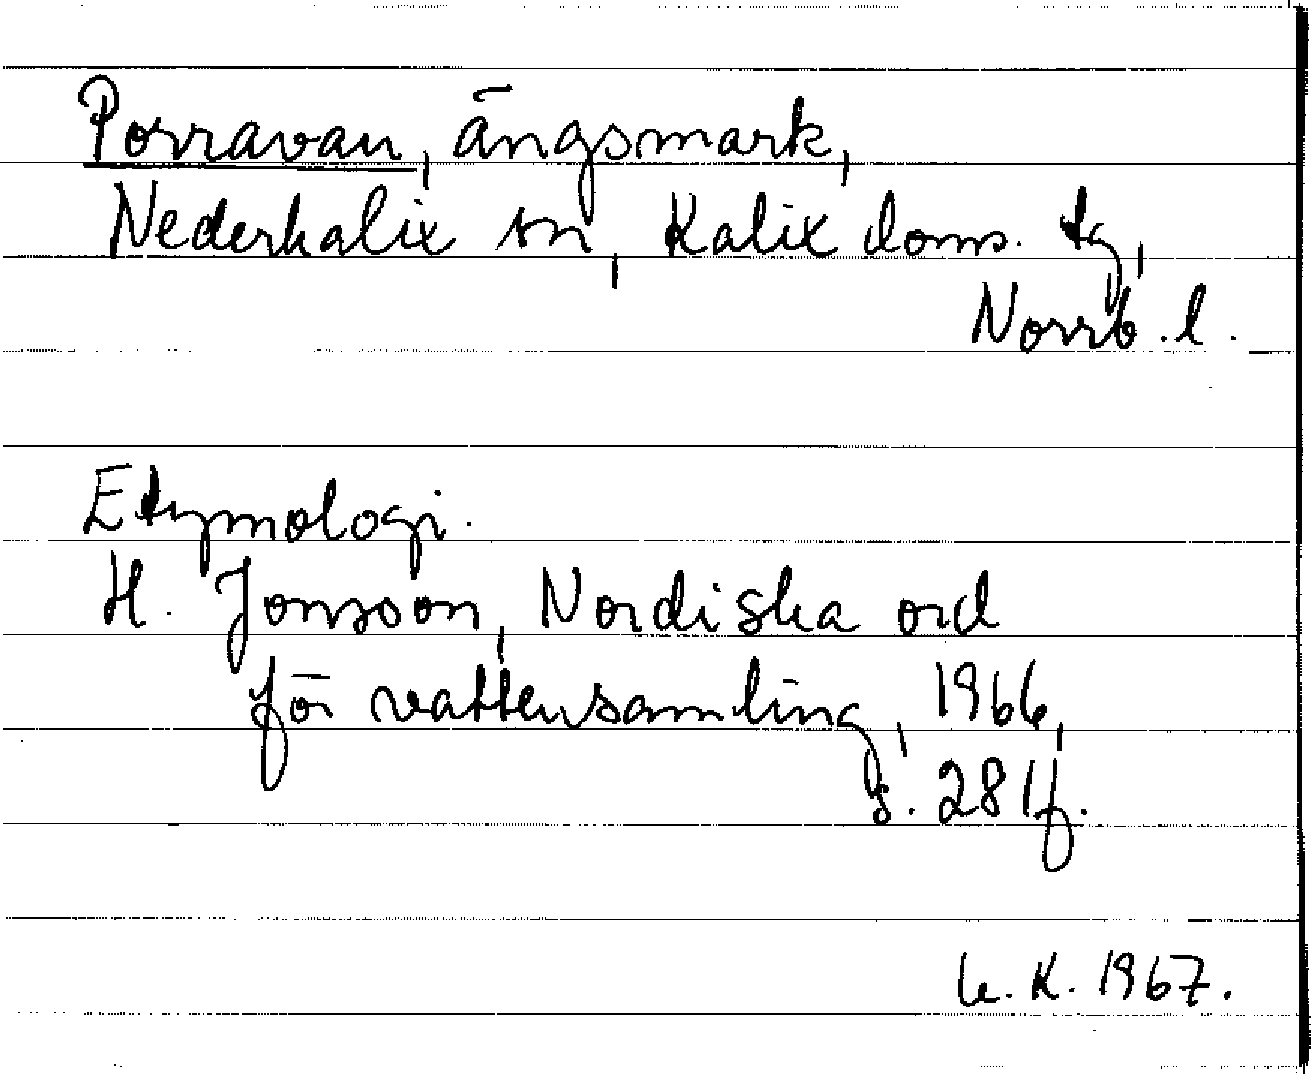 Porravan, ängsmark,
Nederkalix sn, Kalix doms. tg,
Norrb. l.
Etymologi.
H. Jonsson, Nordiska ord
för vattensamling, 1966,
s. 281f.
K. 1967.